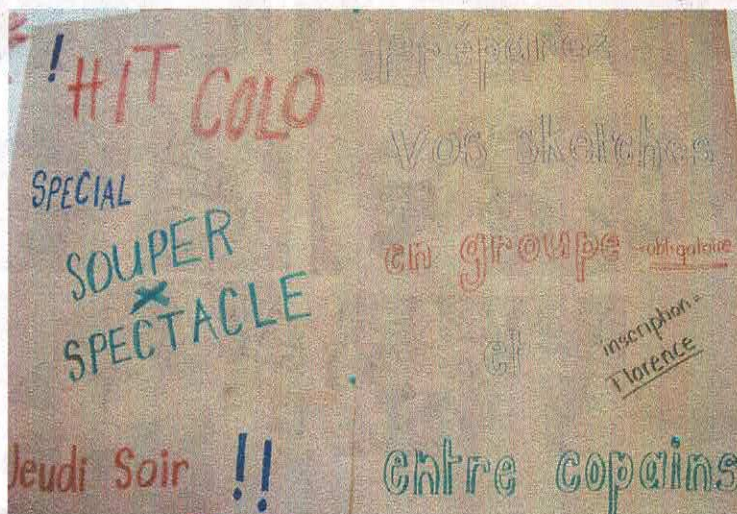 ! HIT COLO
SPECIAL
SOUPER
X
SPECTACLE
Jeudi Soir !!
Préparez
vos sketches
en groupe - obligatoire
et
inscription =
Florence
entre copains